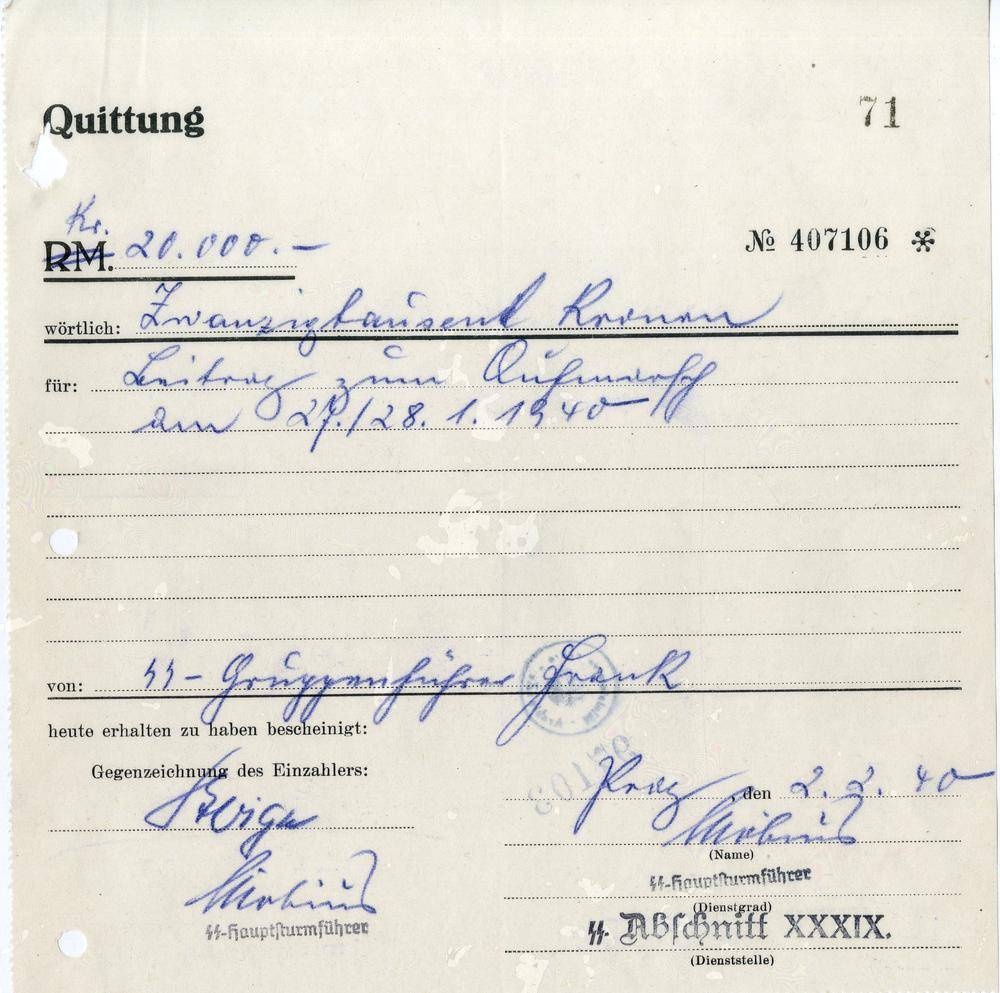 Quittung
71
Kr.
RM. 20.000.—
№ 407106 *
wörtlich: Zwanzigtausent Kronen
für: Beitrag zum Aufmarsch
am 27./28. 1. 1940
von: ϟϟ- Gruppenführer Frank
heute erhalten zu haben bescheinigt:
Gegenzeichnung des Einzahlers:
Prag, den 2. 2. 40
Möbius
(Name)
Möbius
ϟϟ-Hauptsturmführer
(Dienstgrad)
ϟϟ-Hauptsturmführer
ϟϟ- Abschnitt XXXIX.
(Dienststelle)